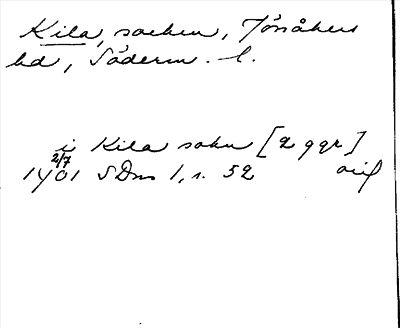 Kila, socken, Jönåkers
hd, Söderm. l.
i Kila sokn [2 ggr]
1401 2/7 SDns 1, s. 52 orig